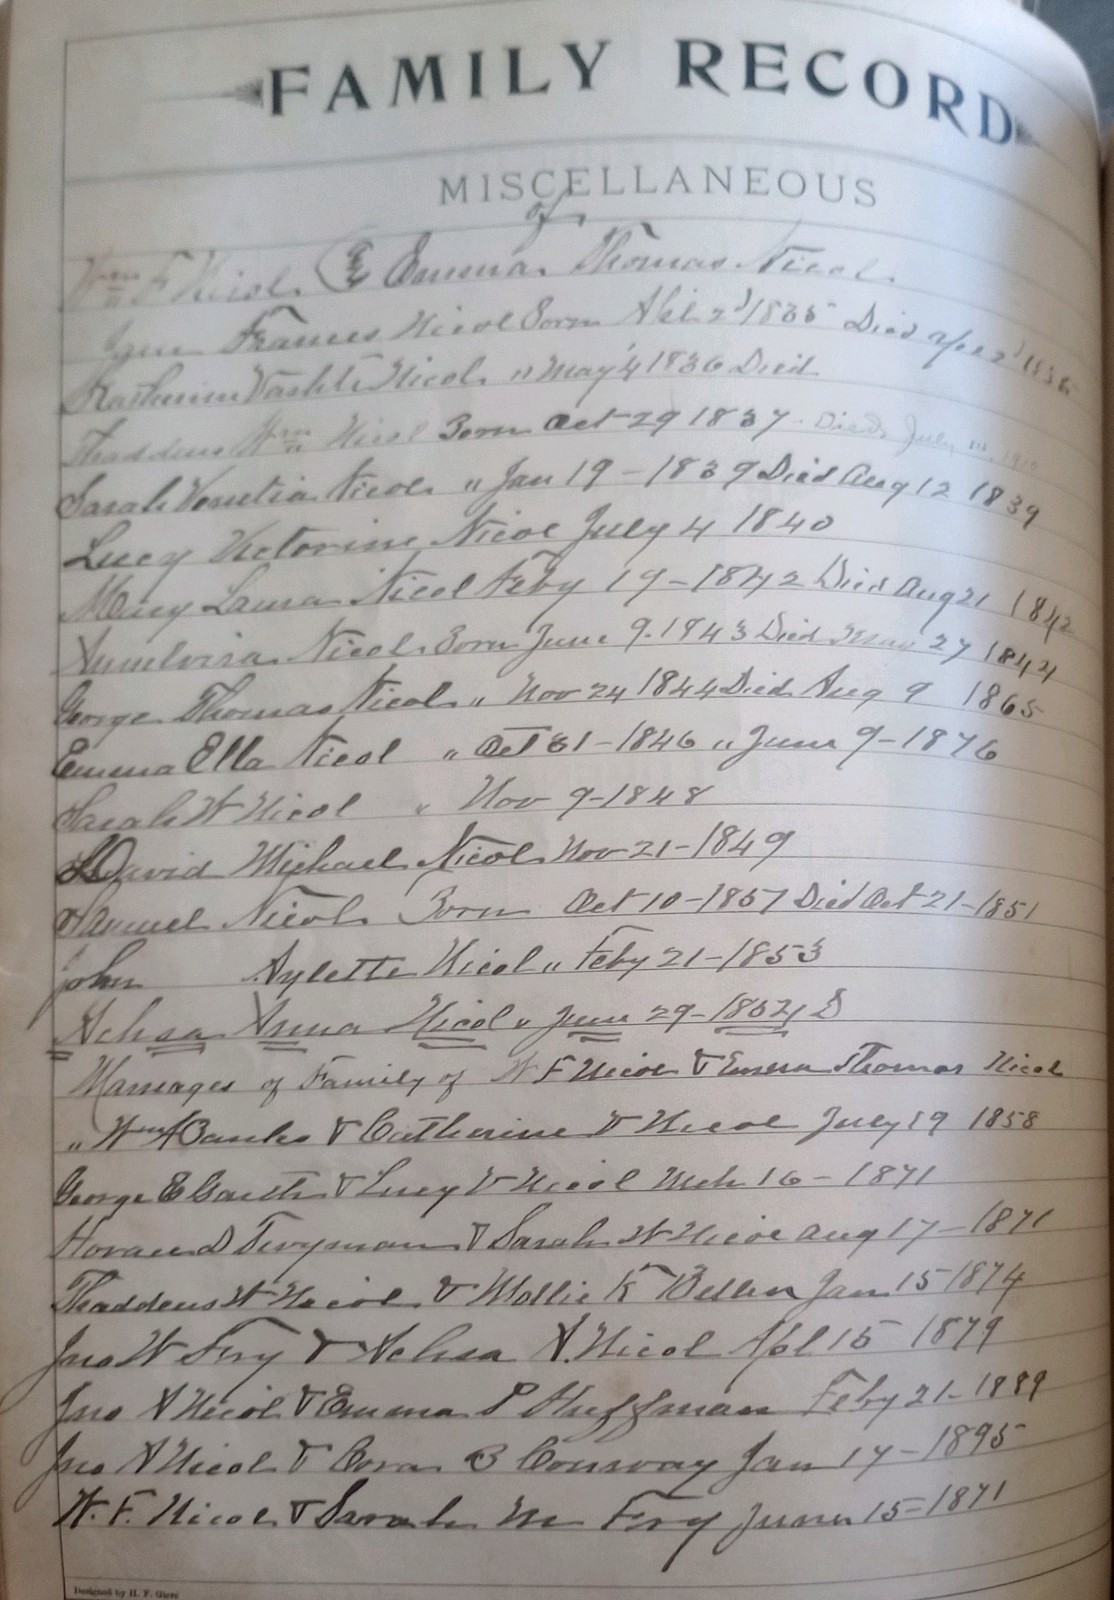 FAMILY RECORD
MISCELLANEOUS
of
Wm F Nicol & Emma Thomas Nicol
Frances Nicol Born Apl 2d 1835 Died 1835
Vashti Nicol " May 4 1836 Died
Thaddeus Wm Nicol Born Oct 29 1837. Died July 1910
Sarah Venetia Nicol " Jan 19 - 1839 Died Aug 12 1839
Lucy Victorine Nicol July 4 1840
Mary Laura Nicol Feby 19 - 1842 Died Aug 21 1842
Nicol Born June 9. 1843 Died 27 1844
George Thomas Nicol " Nov 24 1844 Died Aug 9 1865
Emma Ella Nicol " Oct 31 - 1846 " June 9 - 1876
Sarah W Nicol " Nov 9 - 1848
David Michael Nicol Nov 21 - 1849
Samuel Nicol Born Oct 10 - 1851 Died Oct 21 - 1851
John Aylette Nicol " Feby 21 - 1853
Achsa Anna Nicol " June 29 - 1854 D
Marriages of Family of W F Nicol & Emma Thomas Nicol
" Wm A Banks & Catherine V Nicol July 19 1858
George E Garth & Lucy V Nicol Mch 16 - 1871
Horace D Twyman & Sarah W Nicol Aug 17 - 1871
Thaddeus W Nicol & Mollie K Jan 15 1874
Jno W Fry & Achsa A. Nicol Apl 15 1879
Jno A Nicol & Emma P Huffman Feby 21 - 1889
Jno A Nicol & Cora B Conway Jan 17 - 1895
W. F. Nicol & Sarah M Fry June 15 - 1871
Designed by H. F. Giere